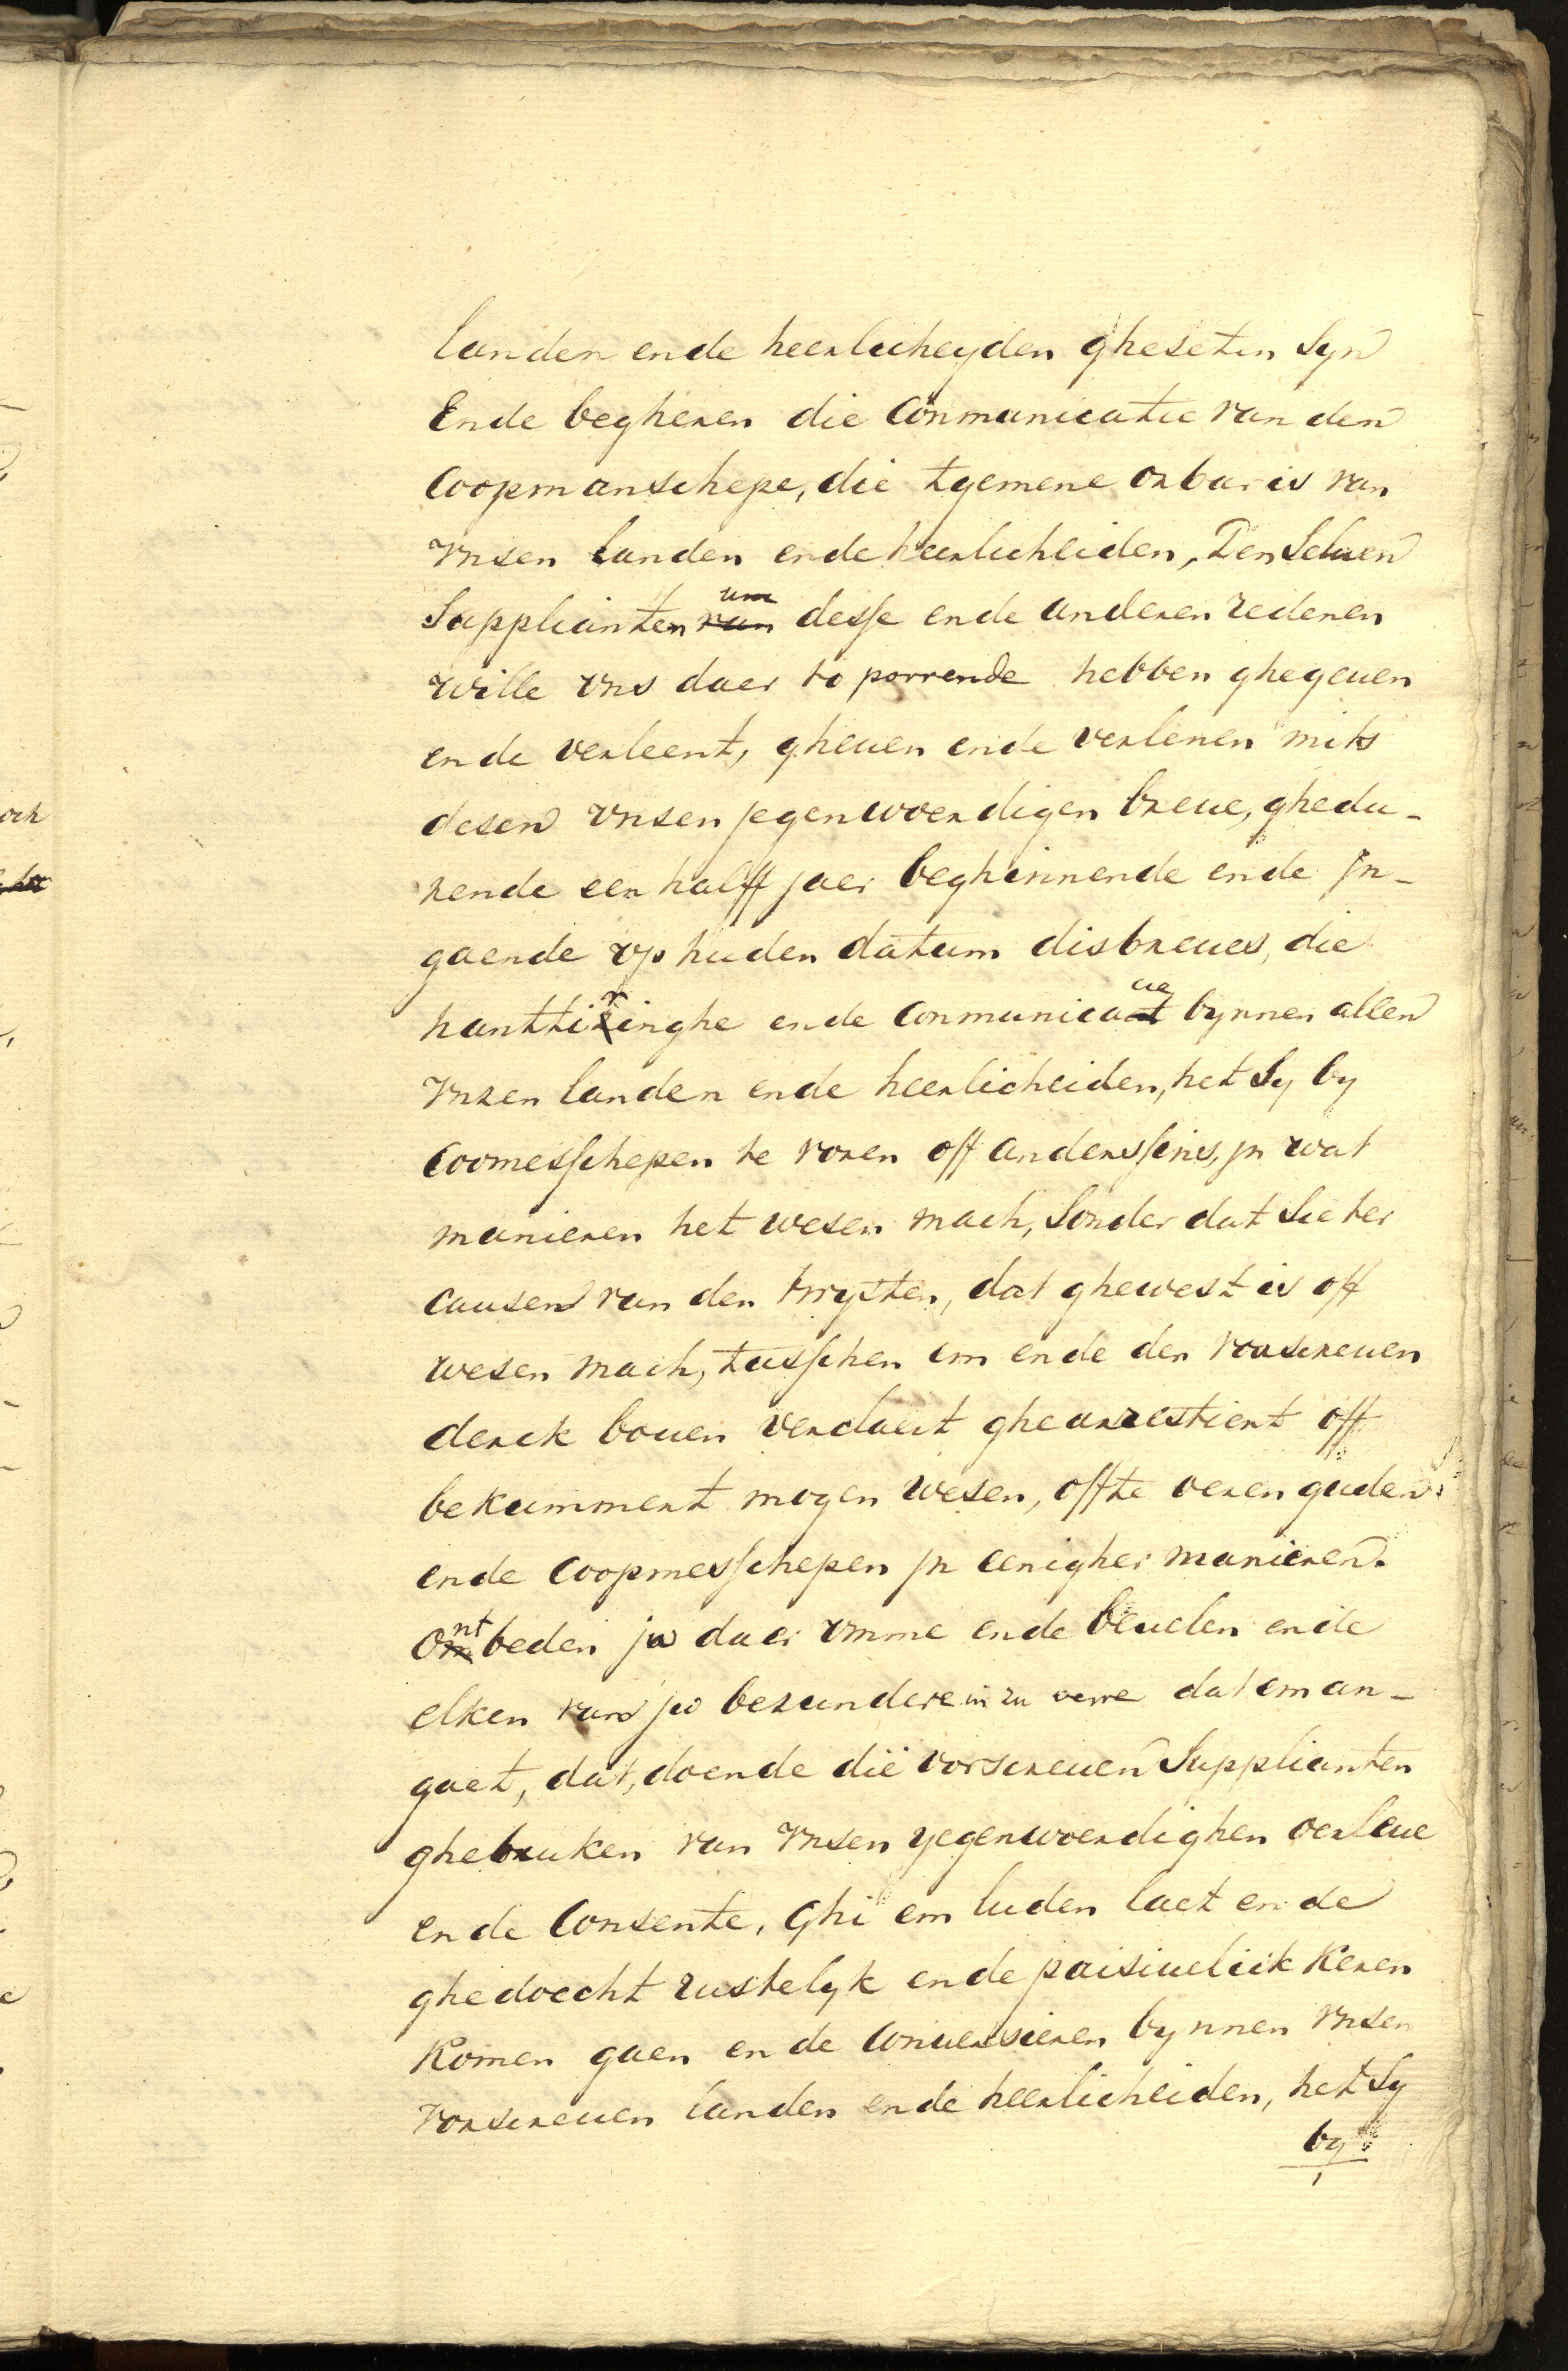 landen ende heerlicheyden gheseten Syn
Ende begheren die Conmunicatie van den
Coopmanschepe, die tgemene orbar is van
vnsen landen ende heerlicheiden, Den Seluen
Supplianten van um desse ende anderen redenen
wille vns daer to porrende hebben ghegeuen
ende verleent, gheuen ende verlenen mits
desen vnsen jegenwoerdigen breue, ghedu-
rende een halff jaer beghinnende ende jn-
gaende vp huden datum disbreues, die
hanttiringhe ende Conmunicacie bynnen allen
vnsen landen ende heerlicheiden, het Sy by
Coomesschepen te voren off anderssins, jn wat
manieren het wesen mach, Sonder dat Sie ter
causen van den twysten, dat ghewest is off
wesen mach, tusschen em ende den vorscreuen
derck bouen verdaert ghearrestiert off
bekummert mogen wesen, offte oeren guden
ende Coopmesschepen jn eenigher manieren.
Ontbeden jw daer vmme ende beuelen ende
elken van jw besundere in zu verre dat em an-
gaet, dat, doende die vorscreuen Supplianten
ghebruken van vnsen yegenwoerdighen oerleue
ende Consente, Ghi em luden laet ende
ghedoecht rustelyk ende paisiuelick keren
Komen gaen ende Conuersieren bynnen vnsen
vorscreuen landen ende heerlicheiden, het Sy
by